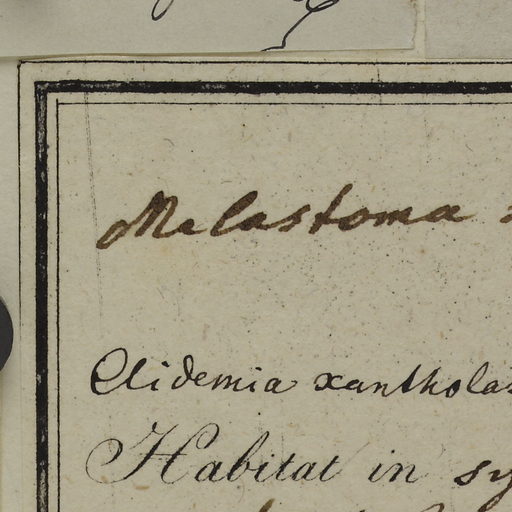 Melastoma
Clidemia xanthola
Habitat in sy